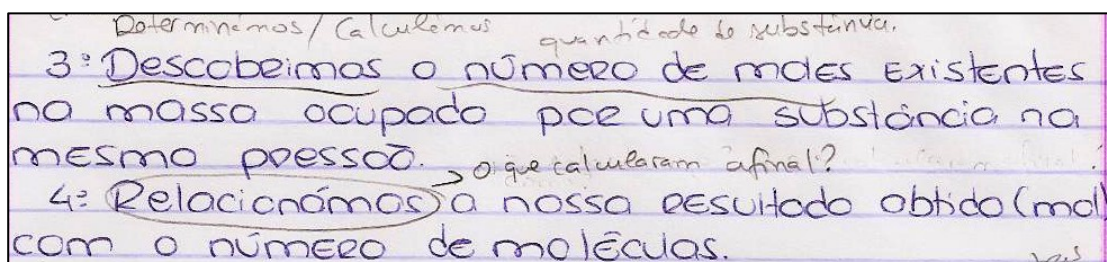 Determinámos/Calculámos quantidade de substância.
3º Descobrimos o número de moles existentes
na massa ocupada por uma substância na
mesma pressão. o que calcularam afinal?
4º Relacionámos a nossa resultado obtido (mol)
com o número de moléculas.